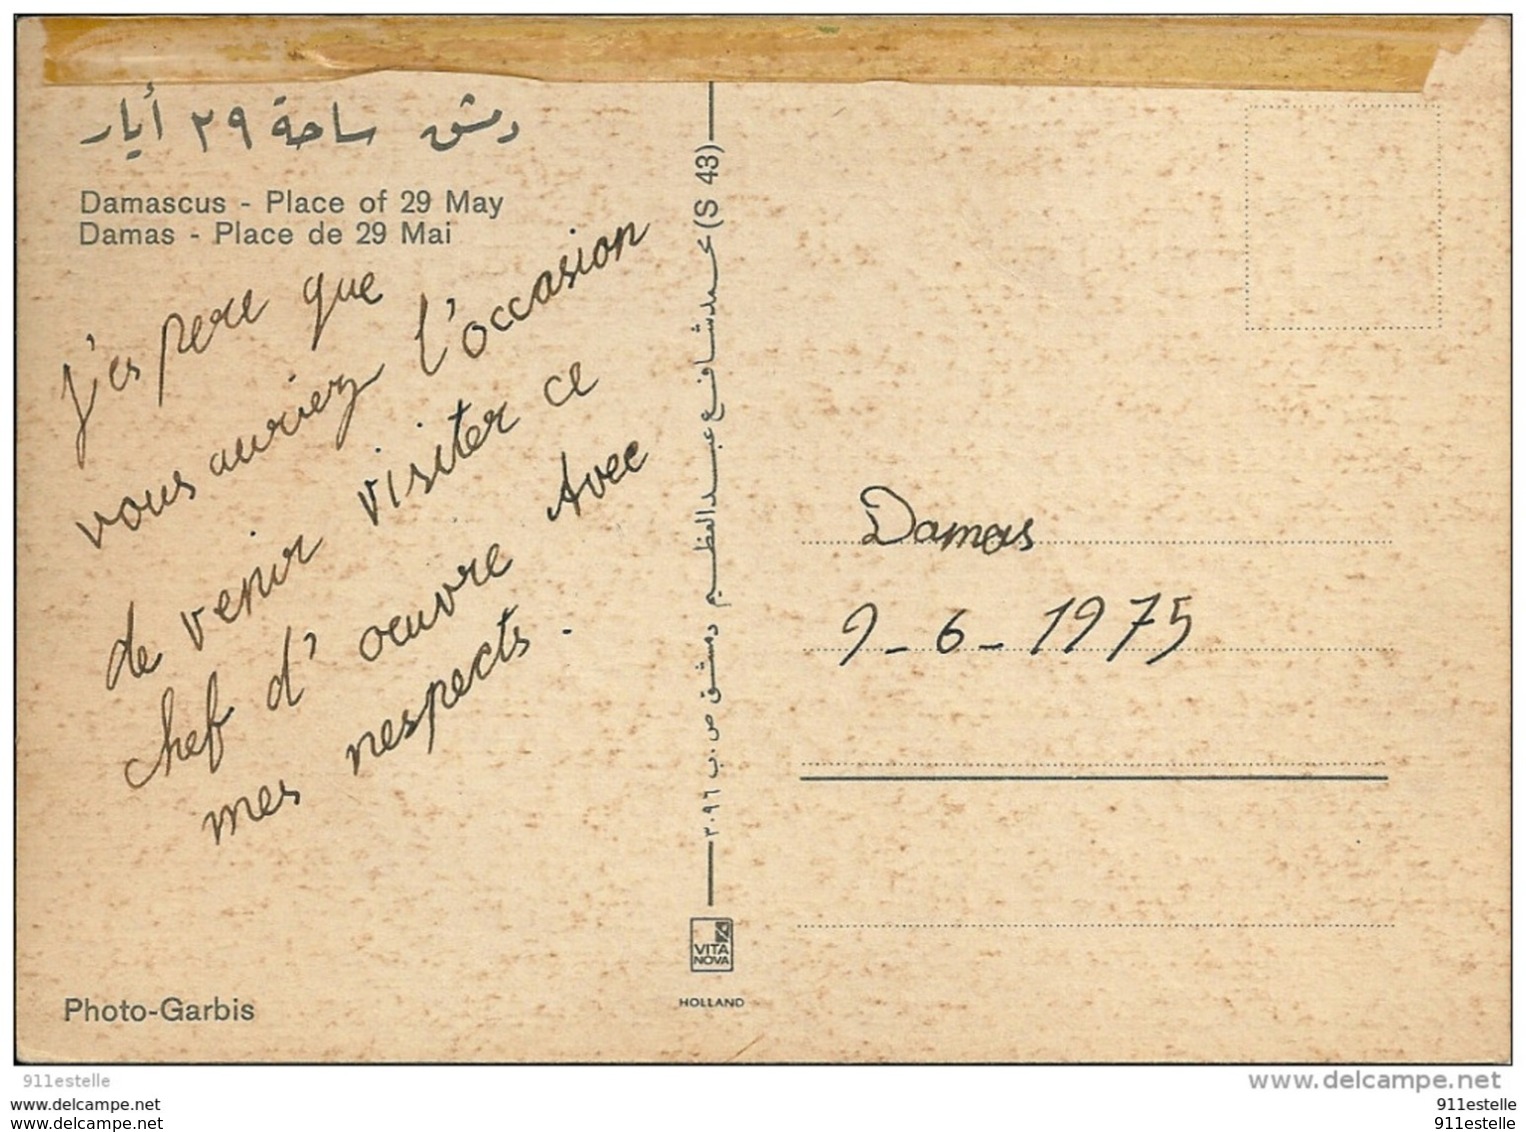 دمشق ساحة ٢٩ أيار
Damascus - Place of 29 May
Damas - Place de 29 Mai
j'espere que
vous auriez l'occasion
de venir visiter ce
chef d'œuvre Avec
mes respects.
Photo-Garbis
محمد شافع عبد العظيم دمشق ص.ب ٣٠٩٦ (S 43)
VITA
NOVA
HOLLAND
Damas
9-6-1975
911estelle
www.delcampe.net
911estelle
911estelle
911estelle
911estelle